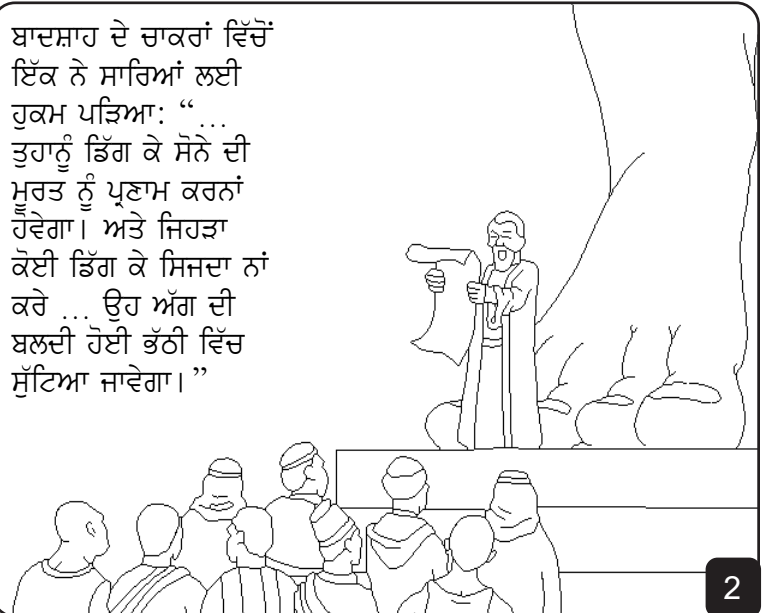 ਬਾਦਸ਼ਾਹ ਦੇ ਚਾਕਰਾਂ ਵਿੱਚੋਂ
ਇੱਕ ਨੇ ਸਾਰਿਆਂ ਲਈ
ਹੁਕਮ ਪੜਿਆ: “...
ਤੁਹਾਨੂੰ ਡਿੱਗ ਕੇ ਸੋਨੇ ਦੀ
ਮੂਰਤ ਨੂੰ ਪ੍ਰਣਾਮ ਕਰਨਾਂ
ਹੋਵੇਗਾ। ਅਤੇ ਜਿਹੜਾ
ਕੋਈ ਡਿੱਗ ਕੇ ਸਿਜਦਾ ਨਾਂ
ਕਰੇ ... ਉਹ ਅੱਗ ਦੀ
ਬਲਦੀ ਹੋਈ ਭੱਠੀ ਵਿੱਚ
ਸੁੱਟਿਆ ਜਾਵੇਗਾ।”
2